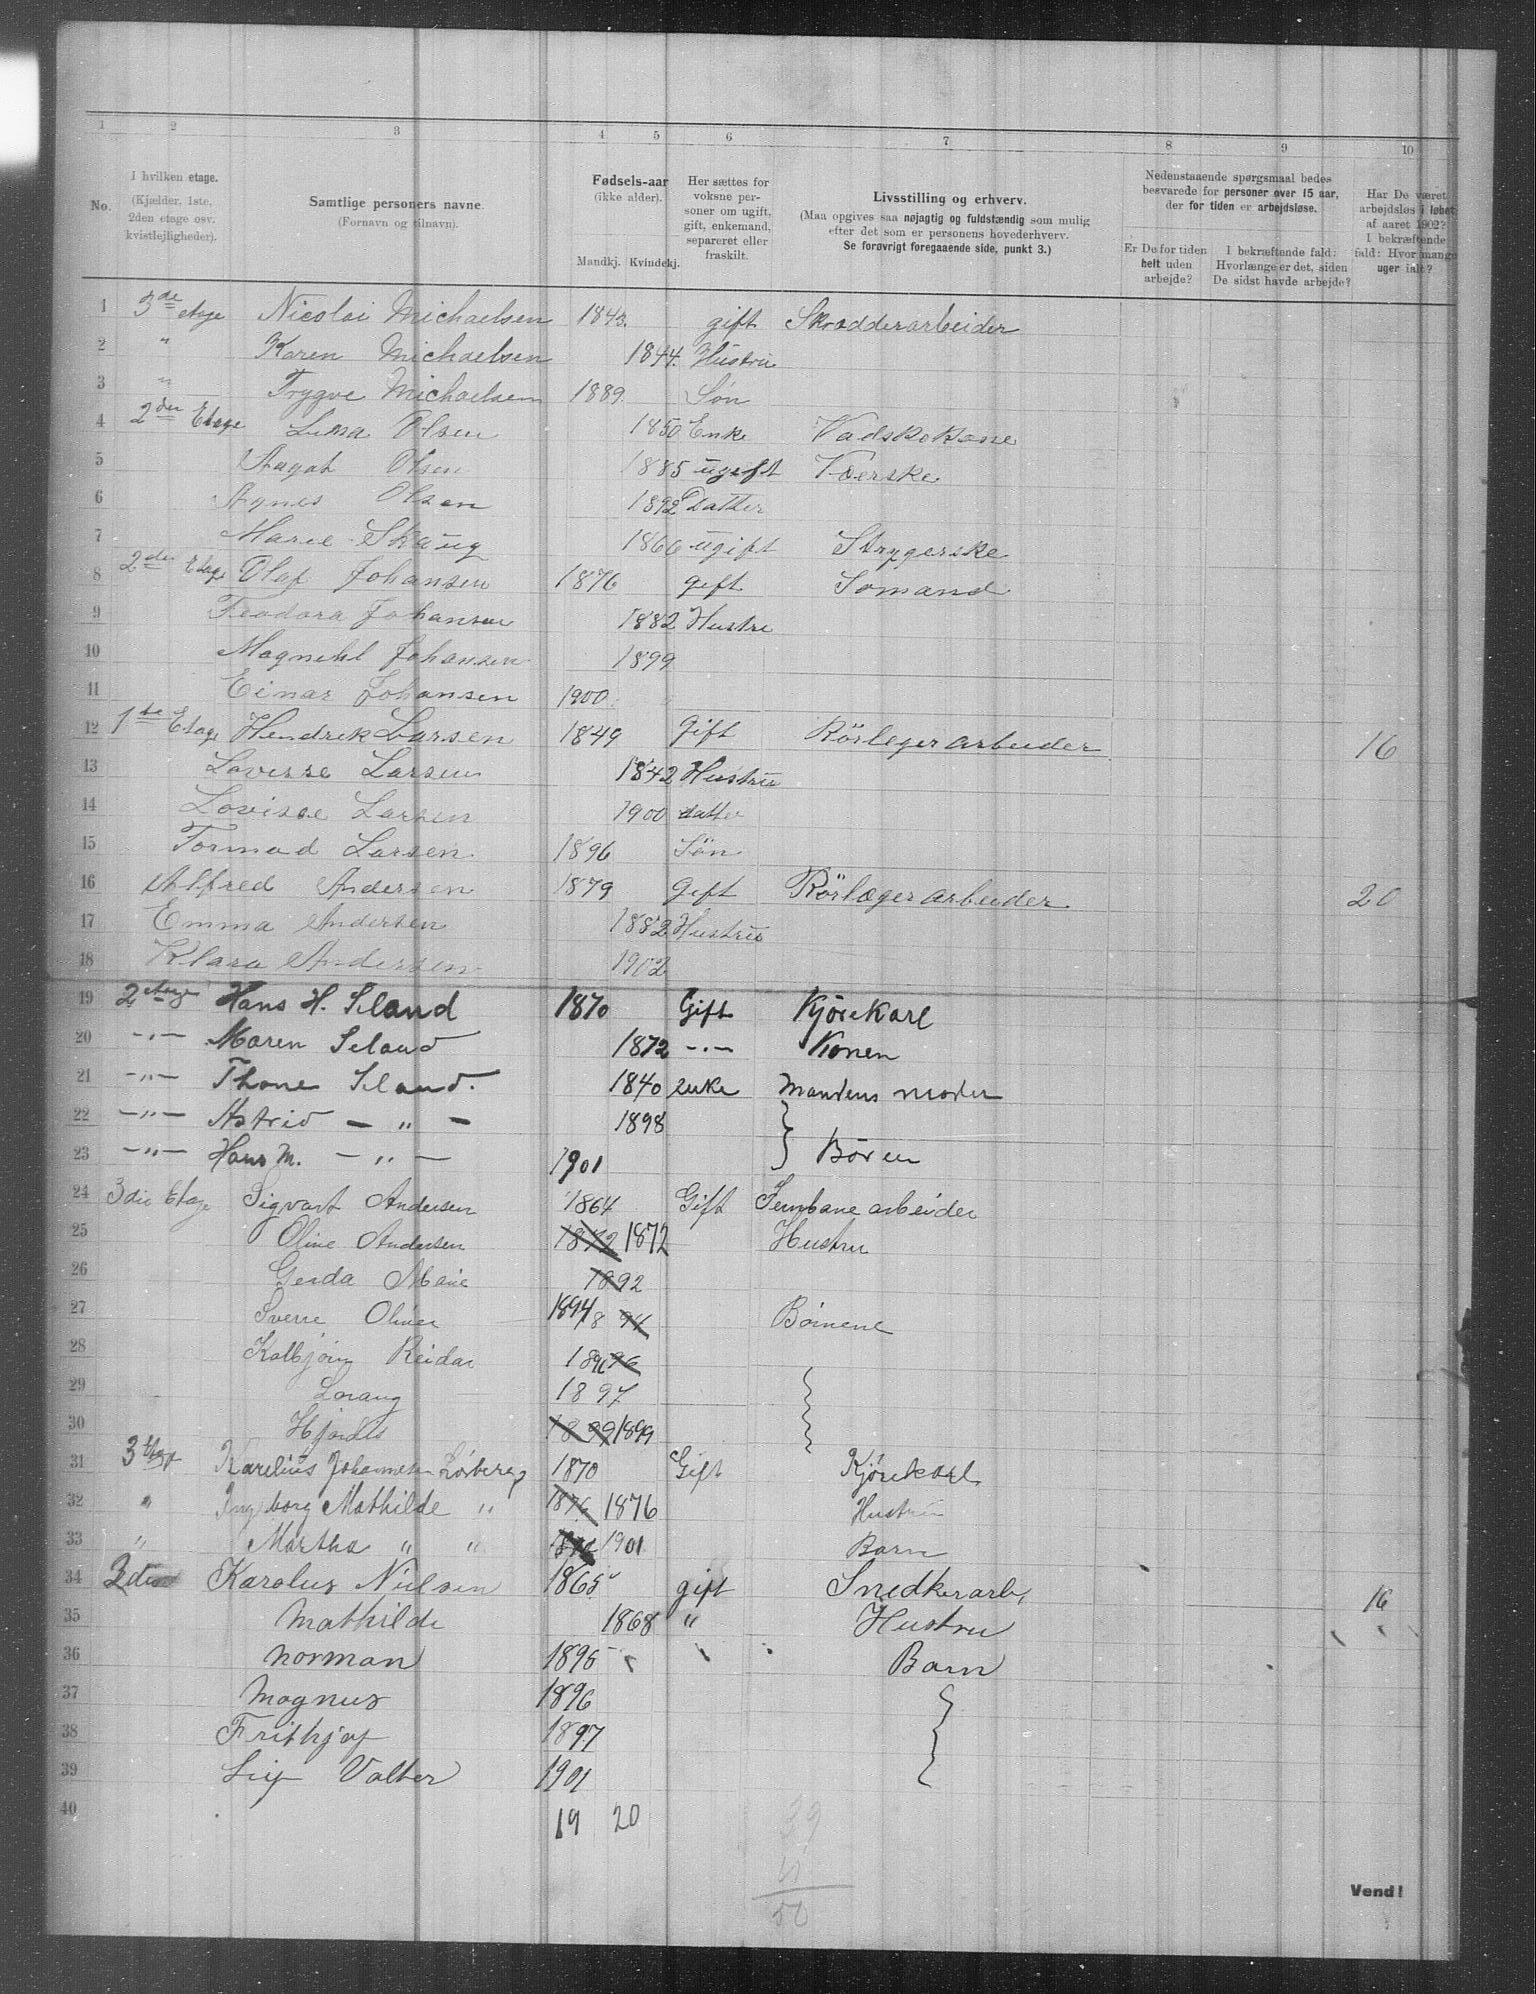 1 2 3 4 5 6 7 8 9 10
No.
I hvilken etage.
(Kjælder, 1ste,
2den etage osv.
kvistlejligheder).
Samtlige personers navne.
(Fornavn og tilnavn).
Fødsels-aar
(ikke alder).
Mandkj. Kvindekj.
Her sættes for
voksne per-
soner om ugift,
gift, enkemand,
separeret eller
fraskilt.
Livsstilling og erhverv.
(Maa opgives saa nøjagtig og fuldstændig som mulig
efter det som er personens hovederhverv.
Se forøvrigt foregaaende side, punkt 3.)
Nedenstaaende spørgsmaal bedes
besvarede for personer over 15 aar,
der for tiden er arbejdsløse.
Er De for tiden
helt uden
arbejde?
I bekræftende fald:
Hvorlænge er det, siden
De sidst havde arbejde?
Har De været
arbejdsløs i løbet
af aaret 1902?
I bekræftende
fald: Hvor mange
uger ialt?
1 3de etage Nicolai Michaelsen 1843. gift Skrædderarbeider
2 " Karen Michaelsen 1844. Hustru
3 " Trygve Michaelsen 1889 Søn
4 2den Etage Olsen 1850 Enke Vadskekone
5 Aagot Olsen 1885 ugift Væerske
6 Agnes Olsen 1892 Datter
7 Marie Skaug 1866 ugift Strygerske
8 2den Etage Olaf Johansen 1876 gift Somand
9 Teodora Johansen 1882 Hustru
10 Magnihl Johansen 1899
11 Einar Johansen 1900
12 1ste Etage Hendrek Larsen 1849 Gift Rörleger arbeider 16
13 Lovisse Larsen 1842 Hustru
14 Lovisae Larsen 1900 datter
15 Tormod Larsen 1896 Sön
16 Alfred Andersen 1879 Gift Rörlæger arbeider 20
17 Emma Andersen 1882 Hustru
18 Klara Andersen 1902
19 2 etage Hans H. Seland 1870 Gift Kjørekarl
20 -"- Maren Seland 1872 -"- Konen
21 -"- Thone Seland. 1840 enke Mandens moder
22 -"- Astrid - " - 1898
23 -"- Hans M. - " - 1901 } Børen
24 3die Etage Sigvart Andersen 1864 Gift Jernbane arbeider
25 Oline Andersen 1872 1872 Hustru
26 Gerda Marie 1892
27 Sverre Oliver 1894 18 94 Børnene
28 Kolbjørn Reidar 1896 96
29 Lorang 1897
30 Hjørdis 1899 1899
31 3 Etage Karelius Johannesen Lösberg 1870 Gift Kjørekarl
32 " Ingeborg Mathilde " 1876 1876 Hustru
33 " Martha " " 1901 Barn
34 3die Karolus Nielsen 1865 gift Snedkerarb. 16
35 Mathilde 1868 " Hustru
36 Norman 1895 Barn
37 Magnus 1896
38 Frithjof 1897
39 Leif Valter 1901
40 19 20
39
11
50
Vend!